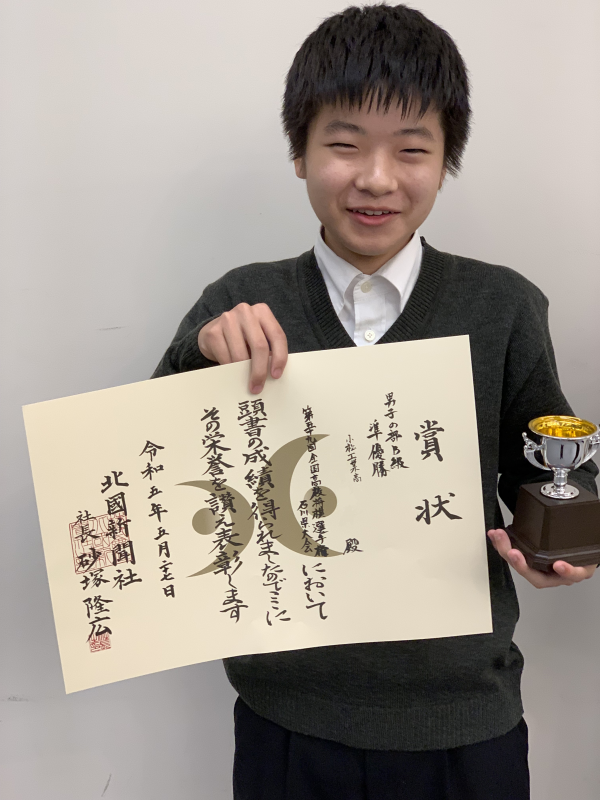 賞状
男子の部B級
準優勝
小松工業高
殿
第五十九回全国高校将棋選手権
石川県大会において
頭書の成績を得られましたのでここに
その栄誉を讃え表彰します
令和五年五月二十七日
北國新聞社
社長 砂塚隆広